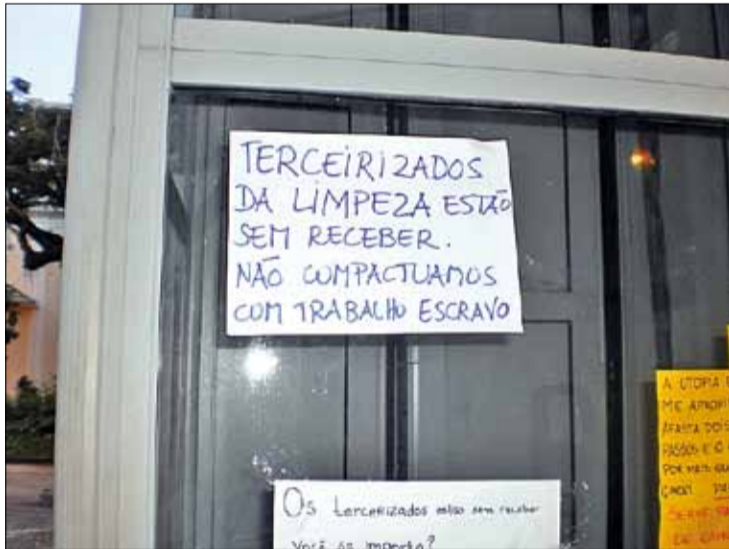 TERCEIRIZADOS
DA LIMPEZA ESTÃO
SEM RECEBER.
NÃO COMPACTUAMOS
COM TRABALHO ESCRAVO
Os terceirizados estão sem receber
Você se importa?
A UTOPIA
ME APROXI
AFASTA DOIS
PASSOS E O
POR MAIS QUE